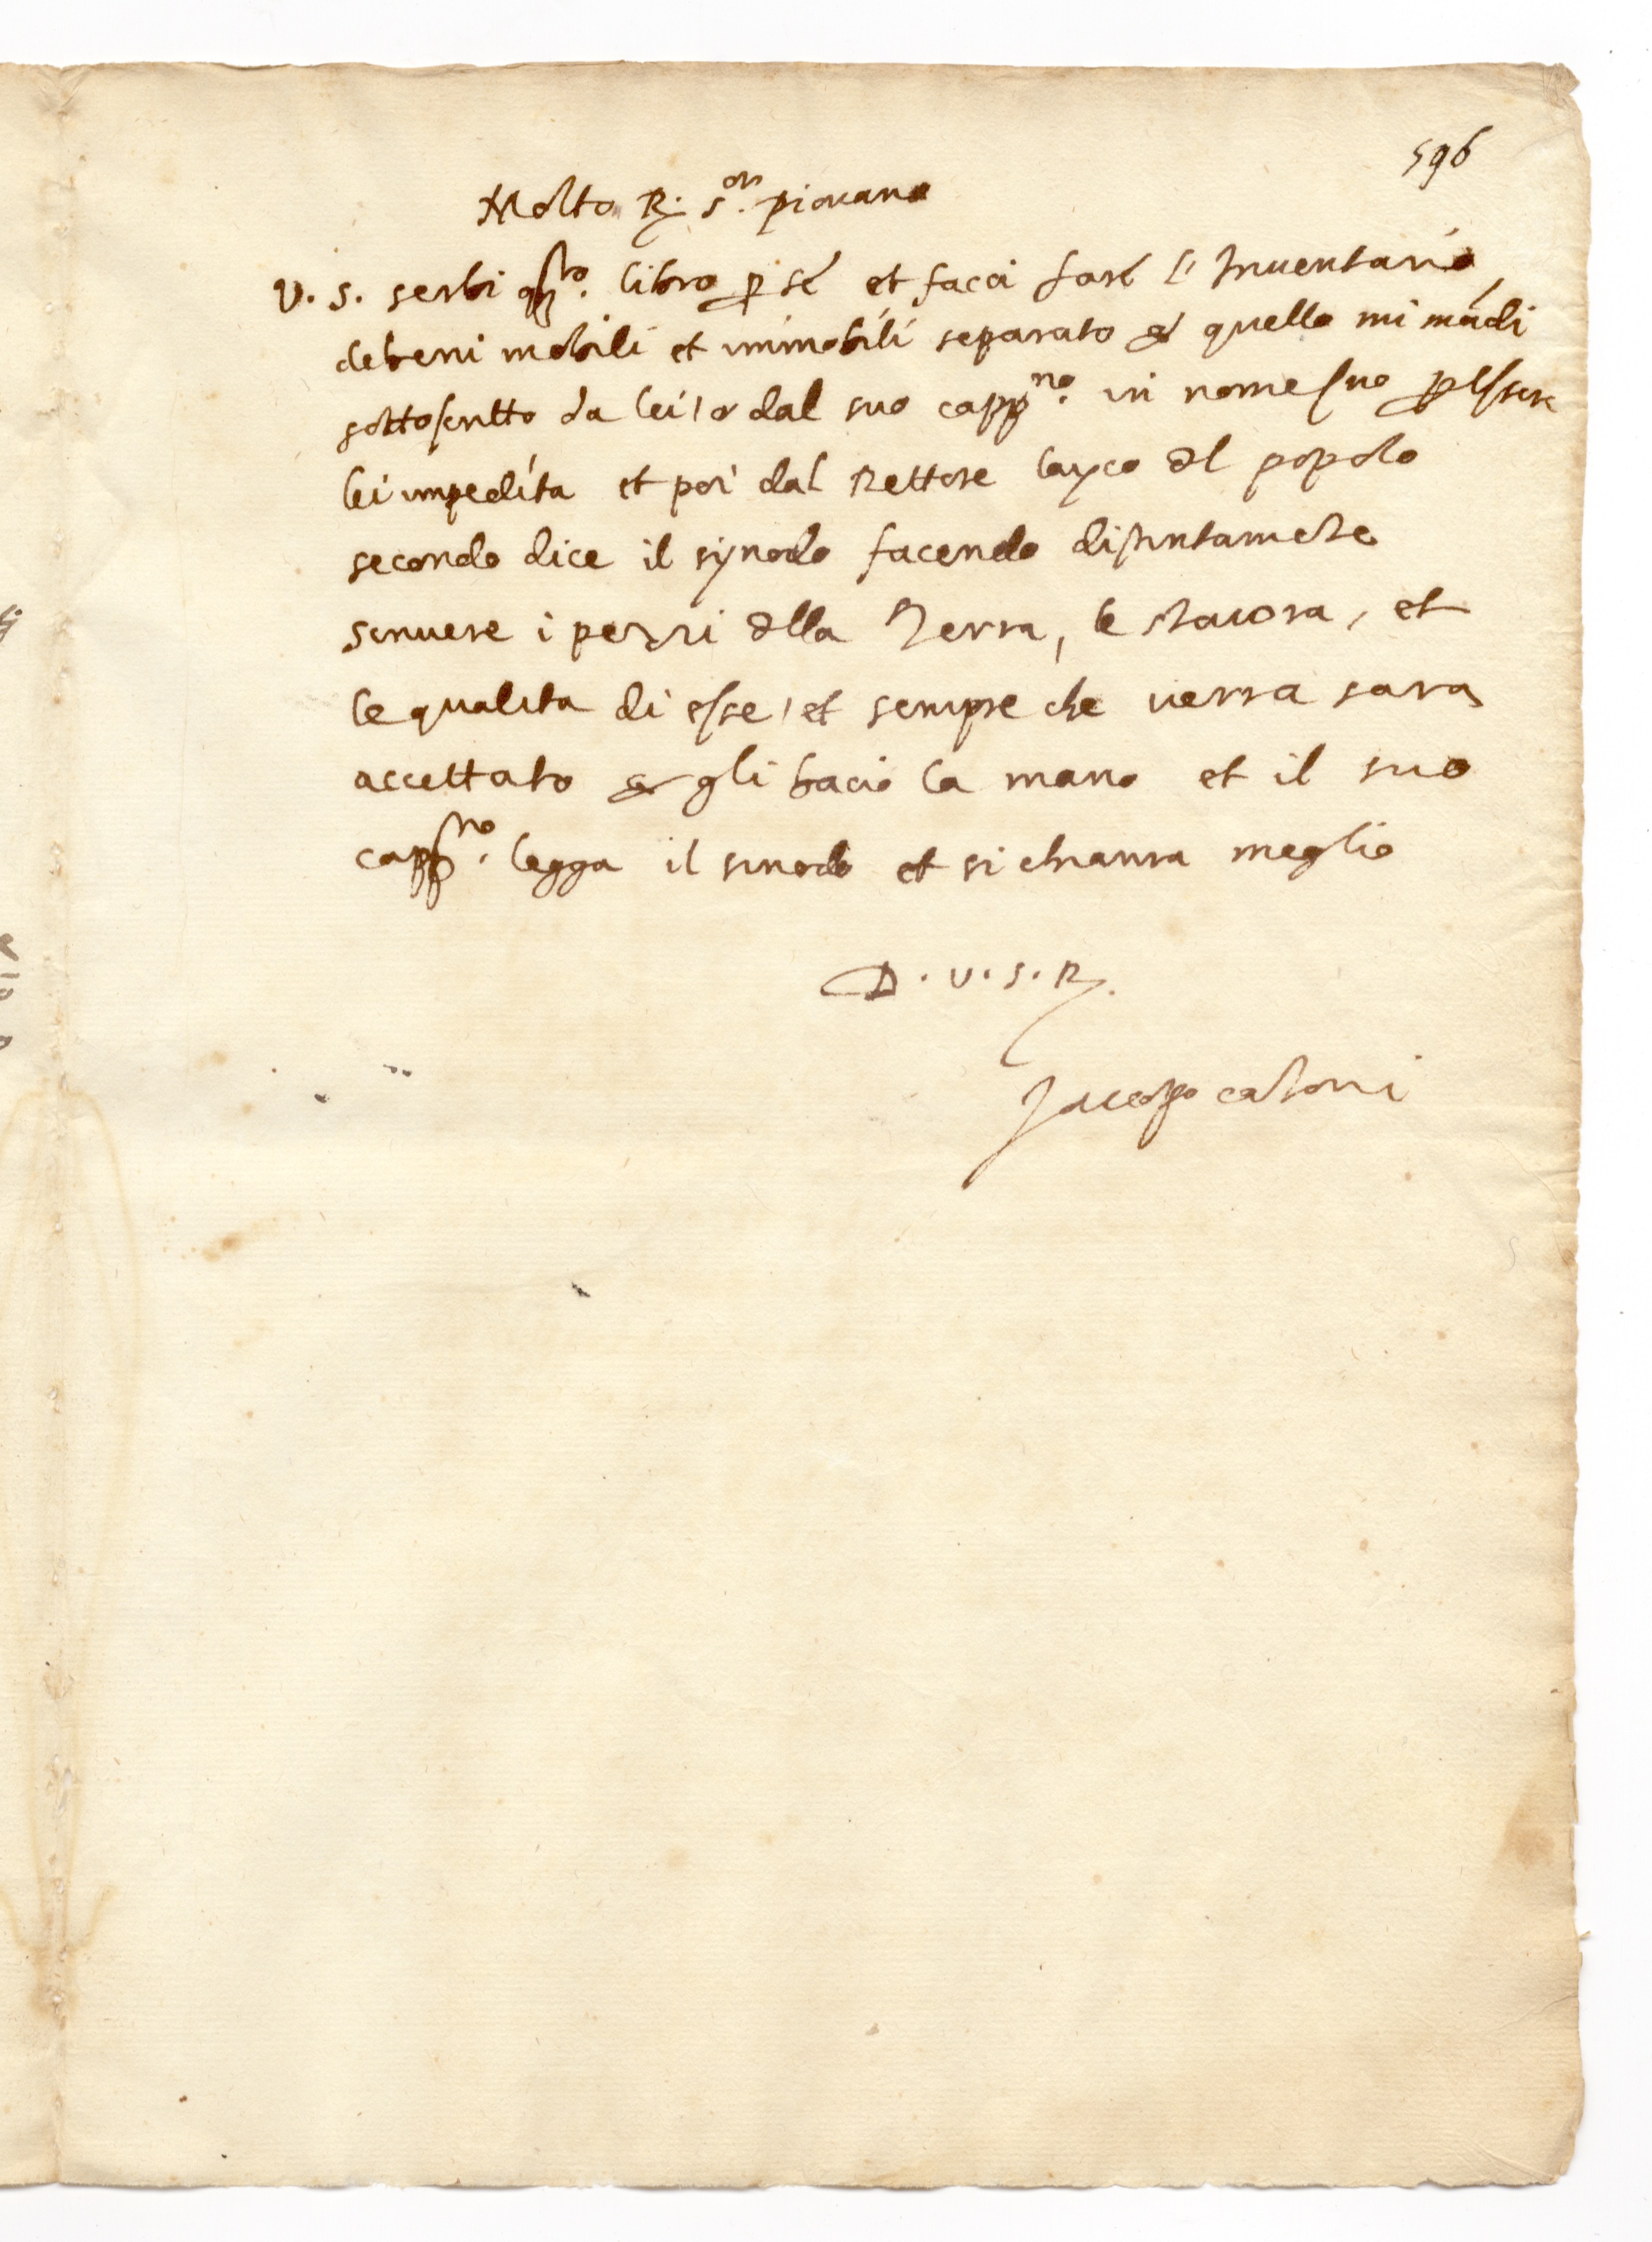 596
Molto R. s.or piovano
V. S. serbi qsto. libro p se et facci fare l'Inventario
debeni mobili et immobili separato et quello mi mādi
sottoscritto da lei, o dal suo capp.no in nome suo p essere
lei impedita et poi dal Rettore layco dl popolo
secondo dice il synodo facendo distintamēte
scrivere i pezzi dlla Terra, le staiora, et
le qualita di esse, et sempre che verra sara
accettato et gli bacio la mano et il suo
capp.no legga il sinodo et si chiarira meglio
D. V. S. R.
Jacopo